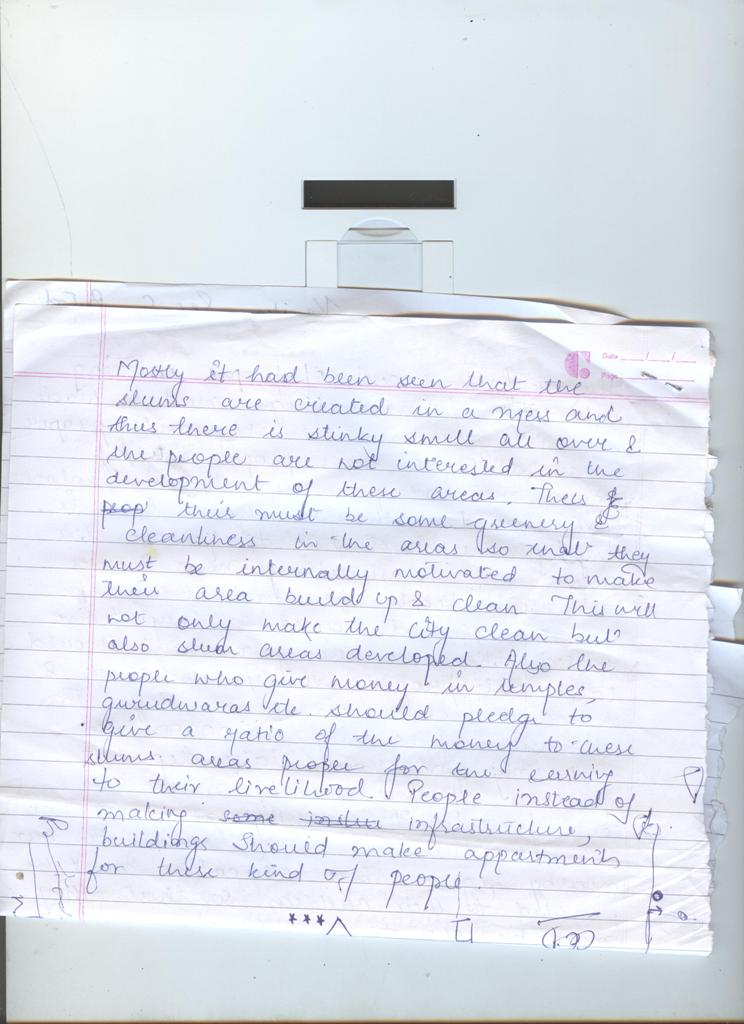 Date __/__/__
Page
Mostly it had been seen that the
slums are created in a mess and
thus there is stinky smell all over &
the people are not interested in the
development of these areas. Theis &
peop their must be some greenery &
cleanliness in the areas so that they
must be internally motivated to make
their area build up & clean This will
not only make the city clean but
also slum areas developed. Also the
people who give money in temples,
gurudwaras etc. should pledge to
give a ratio of the money to these
slums areas people for the earning
to their livelihood. People instead of
making some infrastructure,
buildings should make appartments
for these kind of people.
***